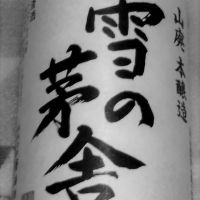 山廃 本醸造
雪の
茅舎